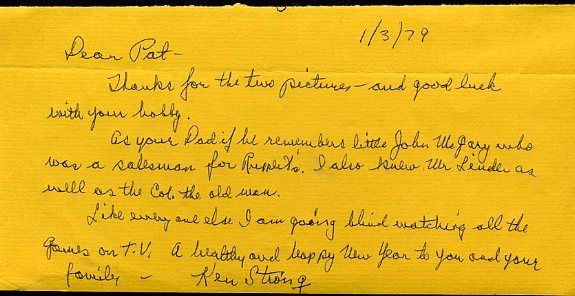 1/3/79
Dear Pat-
Thanks for the two pictures - and good luck
with your hobby.
As your Dad if he remembers little John McGary who
was a salesman for Ruppert's. I also knew Mr Linder as
well as the Col. the old man.
Like every one else I am going blind watching all the
games on T.V. A healthy and happy New Year to you and your
family - Ken Strong